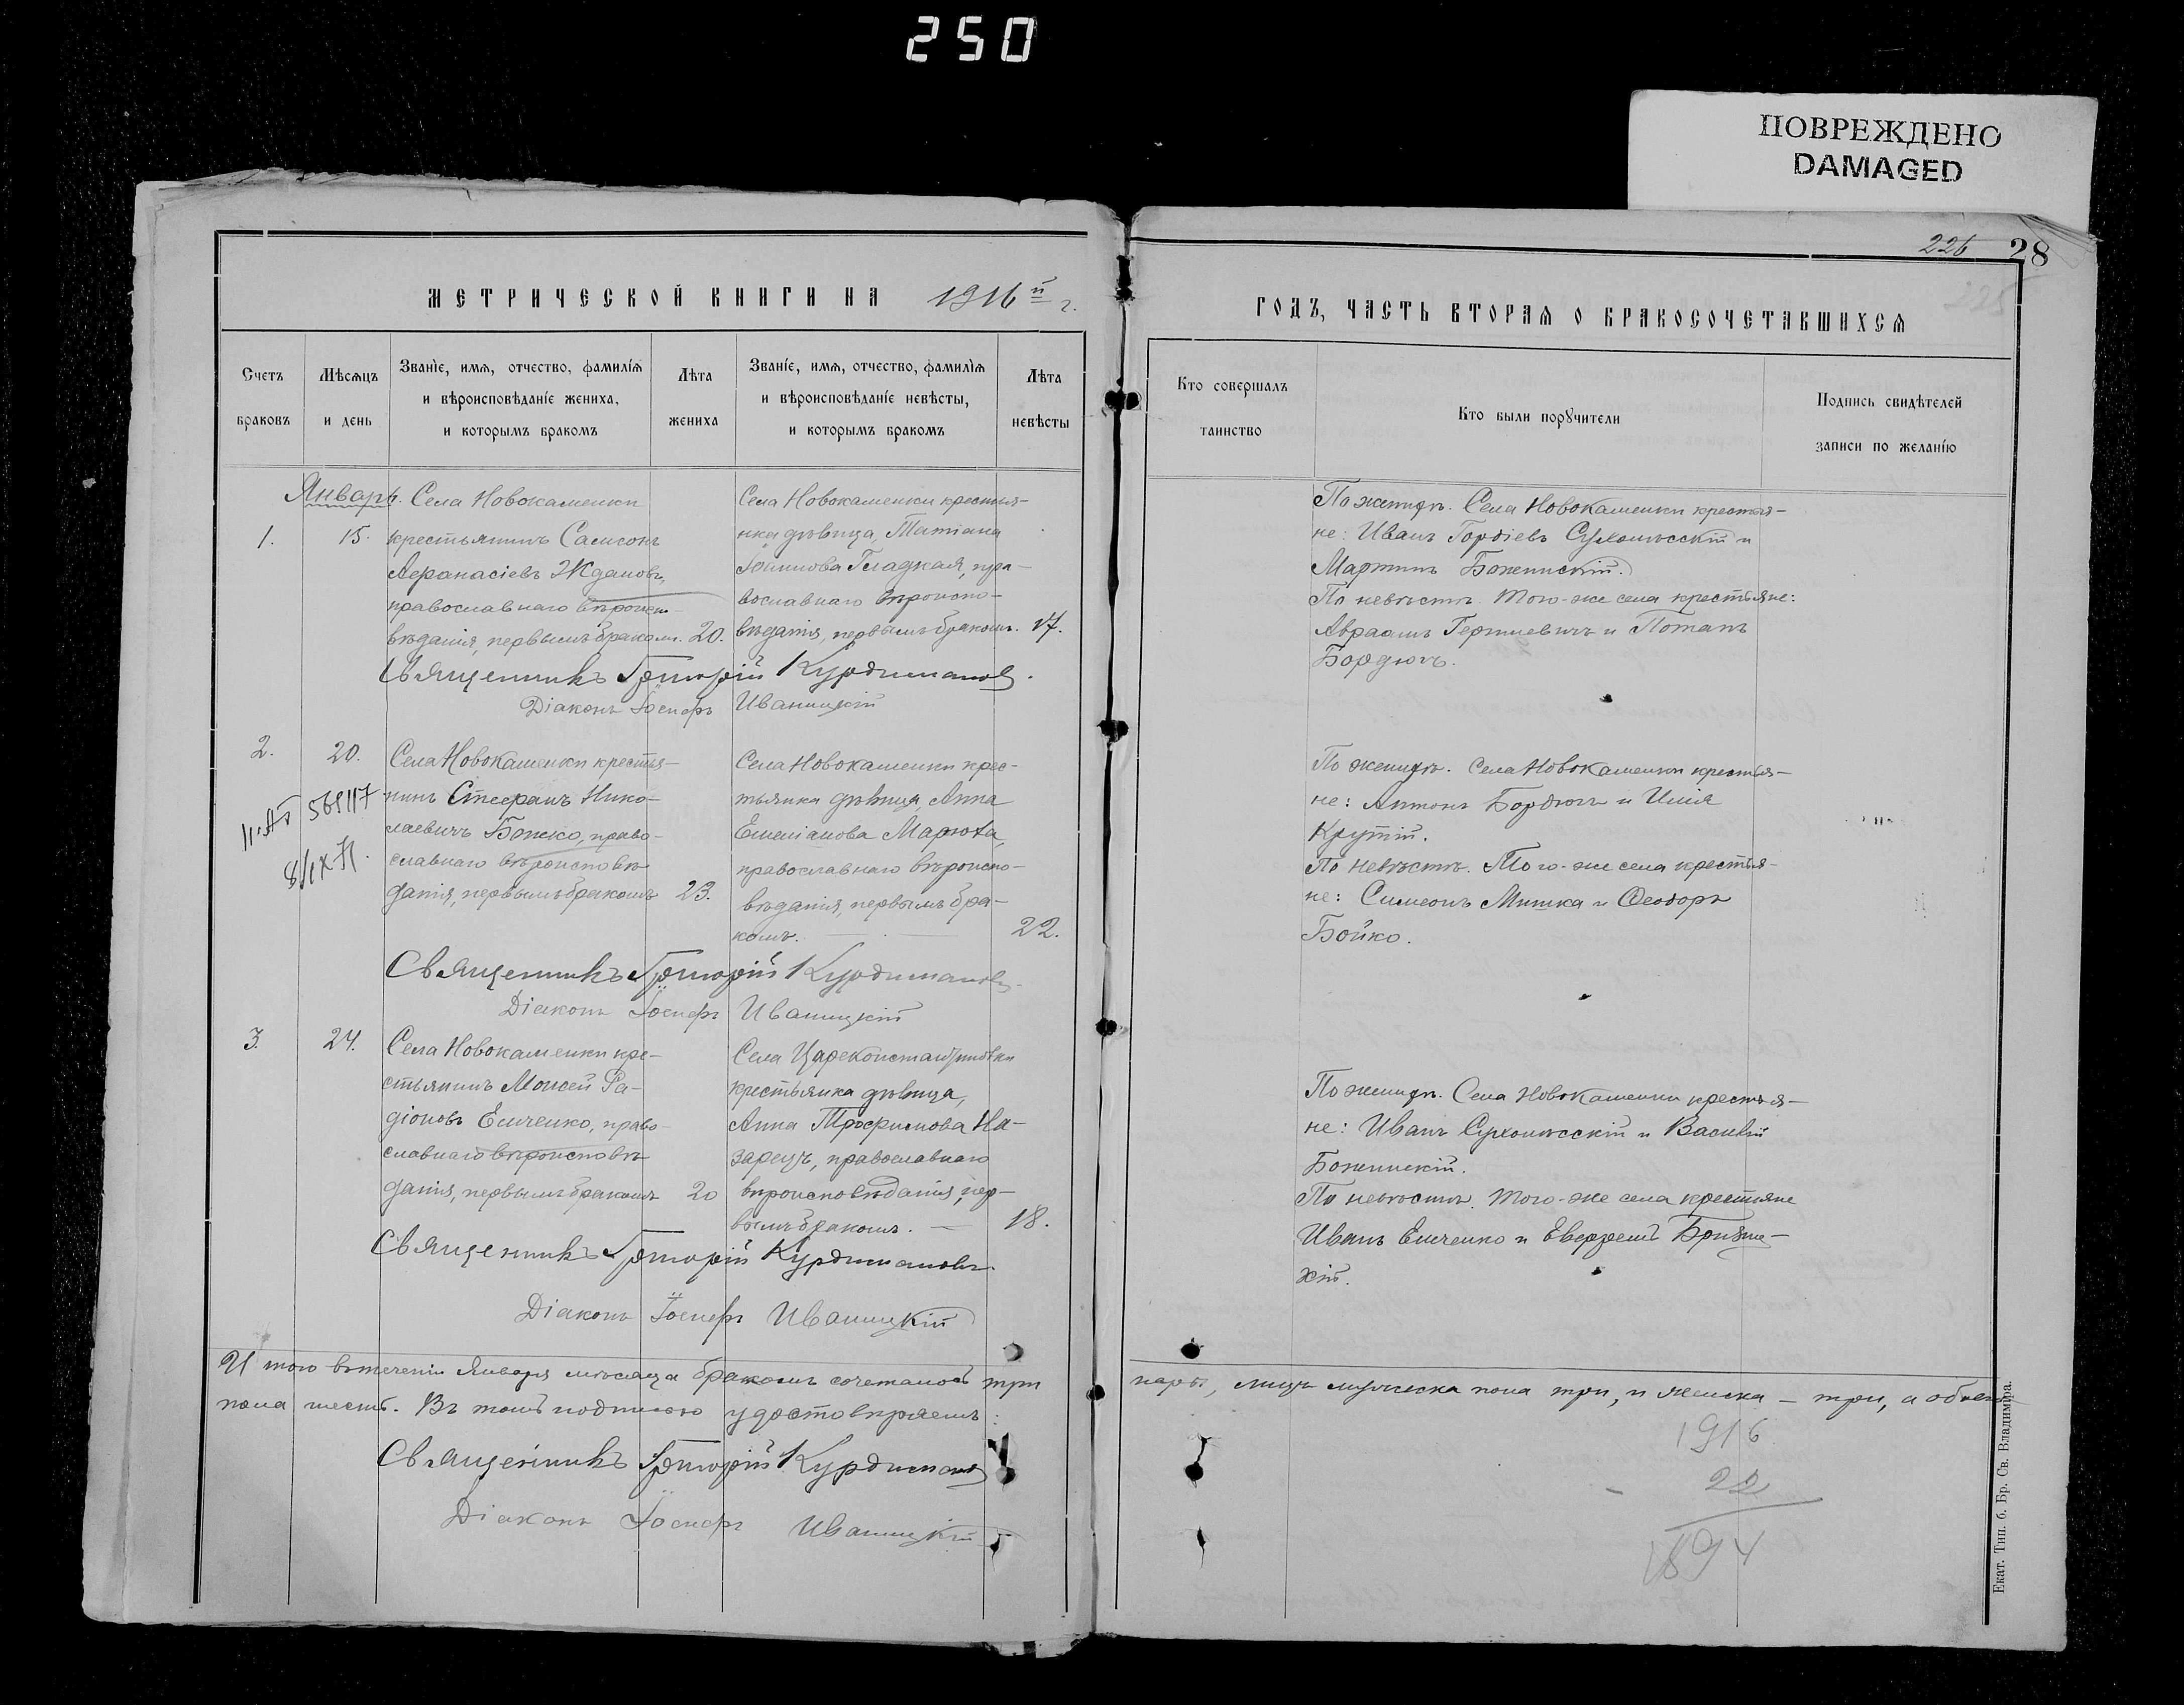 250
ПОВРЕЖДЕНО
DAMAGED
226 28
МЕТРИЧЕСКОЙ КНИГИ НА 1916й г.
ГОДЪ, ЧАСТЬ ВТОРАЯ О БРАКОСОЧЕТАВШИХСЯ
Счетъ браковъ
Мѣсяцъ и день
Званіе, имя, отчество, фамилія
и вѣроисповѣданіе жениха,
и которымъ бракомъ
Лѣта жениха
Званіе, имя, отчество, фамилія
и вѣроисповѣданіе невѣсты,
и которымъ бракомъ
Лѣта невѣсты
Кто совершалъ
таинство
Кто были порꙋчители
Подпись свидѣтелей
записи по желанію
Январь.
1. 15.
Села Новокаменки
крестьянинъ Самсонъ
Аѳанасіевъ Ждановъ,
православнаго вѣроиспо-
вѣданія, первымъ бракомъ. 20.
Села Новокаменки крестья-
нка дѣвица, Татіана
Гладкая, пра-
вославнаго вѣроиспо-
вѣданія, первымъ бракомъ. 17.
Священникъ Григорій Курдимановъ.
Діаконъ Іосифъ Иваницкій
По женихѣ. Села Новокаменки крестья-
не: Иванъ Гордіевъ и
Мартинъ
По невѣстѣ. Того-же села крестьяне:
Авраамъ и Потапъ
Бордюгъ.
2. 20.
Села Новокаменки крестья-
нинъ Стефанъ Нико-
лаевичъ Божко, право-
славнаго вѣроисповѣ-
данія, первымъ бракомъ 23.
II-АП 568117
8/IX-71.
Села Новокаменки крес-
тьянка дѣвица, Анна
Емеліанова Марюха,
православнаго вѣроиспо-
вѣданія, первымъ бра-
комъ. 22.
Священникъ Григорій Курдимановъ.
Діаконъ Іосифъ Иваницкій
По женихѣ. Села Новокаменки крестья-
не: Антонъ Бордюгъ и Илія
Крутій.
По невѣстѣ. Того-же села крестья-
не: Симеонъ Мишка и Ѳеодоръ
Бойко.
3. 24.
Села Новокаменки кре-
стьянинъ Моисей Ра-
діоновъ Емченко, право-
славнаго вѣроисповѣ-
данія, первымъ бракомъ 20
Села Цареконстантиновки
крестьянка дѣвица,
Анна Трофимова На-
зарецъ, православнаго
вѣроисповѣданія, пер-
вымъ бракомъ. 18.
Священникъ Григорій Курдимановъ.
Діаконъ Іосифъ Иваницкій
По женихѣ. Села Новокаменки крестья-
не: Иванъ и Василій
По невѣстѣ. Того-же села крестьяне
Иванъ Емченко и
Итого въ теченіи Января мѣсяца бракомъ сочеталось три пары, лицъ мужеска пола три, и женска – три, а обоего
пола шесть. Въ томъ подписью удостовѣряемъ:
Священникъ Григорій Курдимановъ
Діаконъ Іосифъ Иваницкій
1916
- 22
1894
Екат. Тип. б. Бр. Св. Владимира.